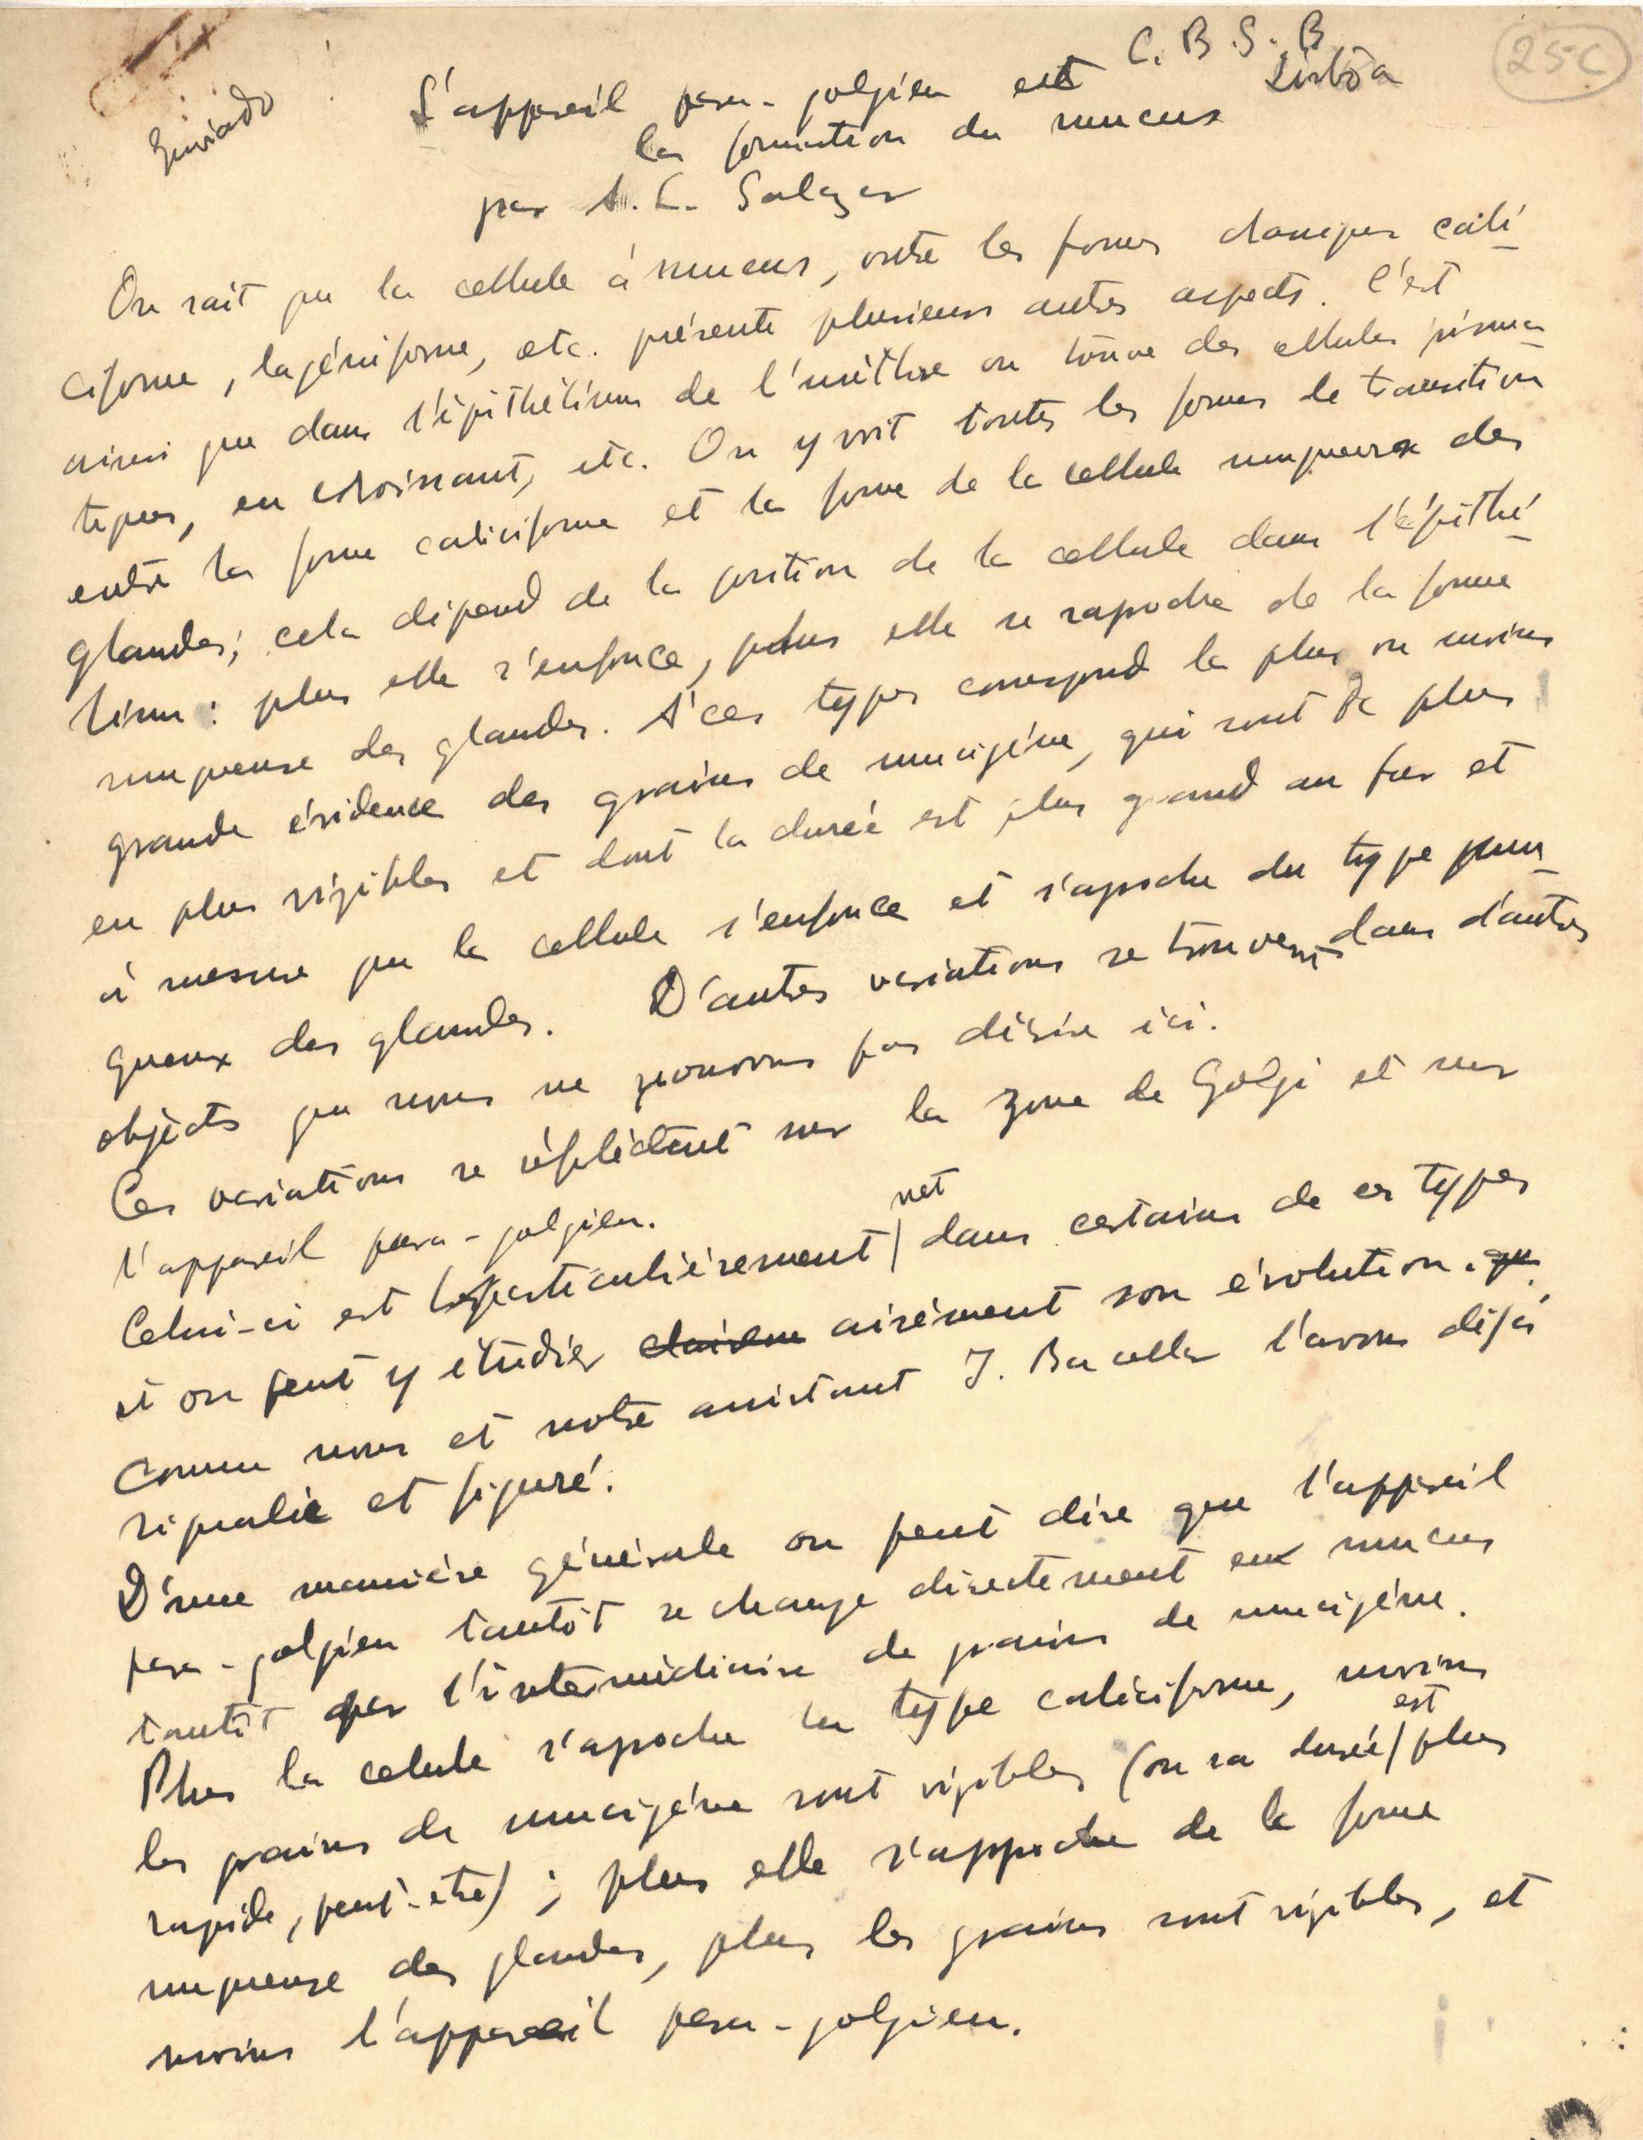 C. B. S. B.
Lisbôa
25C
Enviado
L'appareil para-golgien et
la formation du mucus
par A. L. Salazar
On sait que la cellule à mucus, outre les formes classiques cali-
ciforme, lagéniforme, etc. présente plusieurs autres aspects. C'est
ainsi que dans l'épithélium de l'urèthre on trouve des cellules prisma-
tiques, en croissant, etc. On y voit toutes les formes de transition
entre la forme caliciforme et la forme de la cellule muqueuse des
glandes; cela dépend de la position de la cellule dans l'épithé-
lium : plus elle s'enfonce, plus elle se raproche de la forme
muqueuse des glandes. A ces types correspond la plus ou moins
grande évidence des grains de mucigène, qui sont de plus
en plus visibles et dont la durée est plus grand au fur et
à mesure que la cellule s'enfonce et s'aproche du type mu-
queux des glandes. D'autres variations se trouvent dans d'autres
objects que nous ne pouvons pas décrire ici.
Ces variations se réflèctent sur la zone de Golgi et sur
l'appareil para-golgien.
Celui-ci est particulièrement net dans certains de ces types
et on peut y étudier aisément son évolution.
comme nous et notre assistant J. Bacellar l'avons déjà
signalé et figuré.
D'une manière générale on peut dire que l'appareil
para-golgien tantôt se change directement en mucus
tantôt par l'intermédiaire de grains de mucigène.
Plus la celule s'aproche du type caliciforme, moins
les grains de mucigène sont visibles (ou sa durée est plus
rapide, peut-etre) ; plus elle s'approche de la forme
muqueuse des glandes, plus les grains sont visibles, et
moins l'appareil para-golgien.